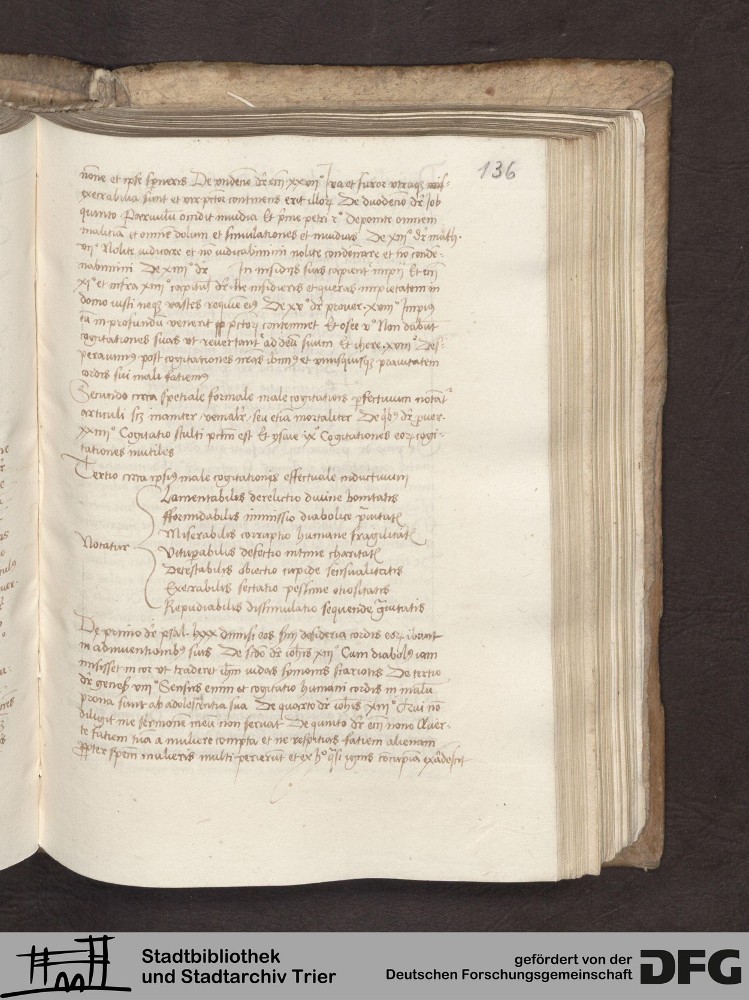 136
none et ipse speneris De undeno dr eccli xxvii° Ira et furor utraque
execrabilia sunt et vir pctor continens erit illorum De duodeno dr Job
quinto Parvulum occidit invidia Et prime petri 2° Deponite omnem
malitiam et omnem dolum et simulationes et invidias De xiii° dr math.
vii° Nolite iudicare et non iudicabimini nolite condemnare et non conde-
nabimini De xiiii° dr In insidiis suis capientur impii Et eiusdem
xi° et infra xxiiii° capitulis dr Ne insidieris et queras impietatem in
domo iusti neque vastes requiem eius De xv° dr prover. xviii° Impius
cum in profundum venerit pctorum contemnet Et osee v° Non dabunt
cogitationes suas ut revertantur ad deum suum Et ihere. xviii° Des-
peravimus post cogitationes nostras ibimus et unusquisque pravitatem
cordis sui mali faciemus
Secundo circa speciale formale male cogitationis perfectivum notatur
articuli scz inaniter venialiter seu etiam mortaliter De quibus dr prover.
xxiiii° Cogitatio stulti pctm est Et ysaie ix° Cogitationes eorum cogi-
tationes inutiles
Tertio circa ipsius male cogitationis effectuale inductivum
Notatur
Lamentabilis derelictio divine bonitatis
Fformidabilis immissio diabolice pravitatis
Miserabilis corruptio humane fragilitatis
Vituperabilis defectio intime charitatis
Detestabilis obiectio cupide sensualitatis
Execrabilis sectatio pessime otiositatis
Repudiabilis dissimulatio sequende gravitatis
De primo dr psal. lxxx dimisi eos secundum desideria cordis eorum ibunt
in adinventionibus suis De secundo dr iohis xiii° Cum diabolus iam
misisset in cor ut traderet ihesum iudas symonis scariotis De tertio
dr genes viii° Sensus enim et cogitatio humani cordis in malum
prona sunt ab adolescentia sua De quarto dr iohis xiiii° Qui non
diligit me sermonem meum non servat De quinto dr eccli nono Aver-
te faciem tuam a muliere compta et ne respicias faciem alienam
Propter speciem mulieris multi perierunt et ex hoc quasi ignis concupiscentia exardescit
Stadtbibliothek
und Stadtarchiv Trier
gefördert von der
Deutschen Forschungsgemeinschaft
DFG